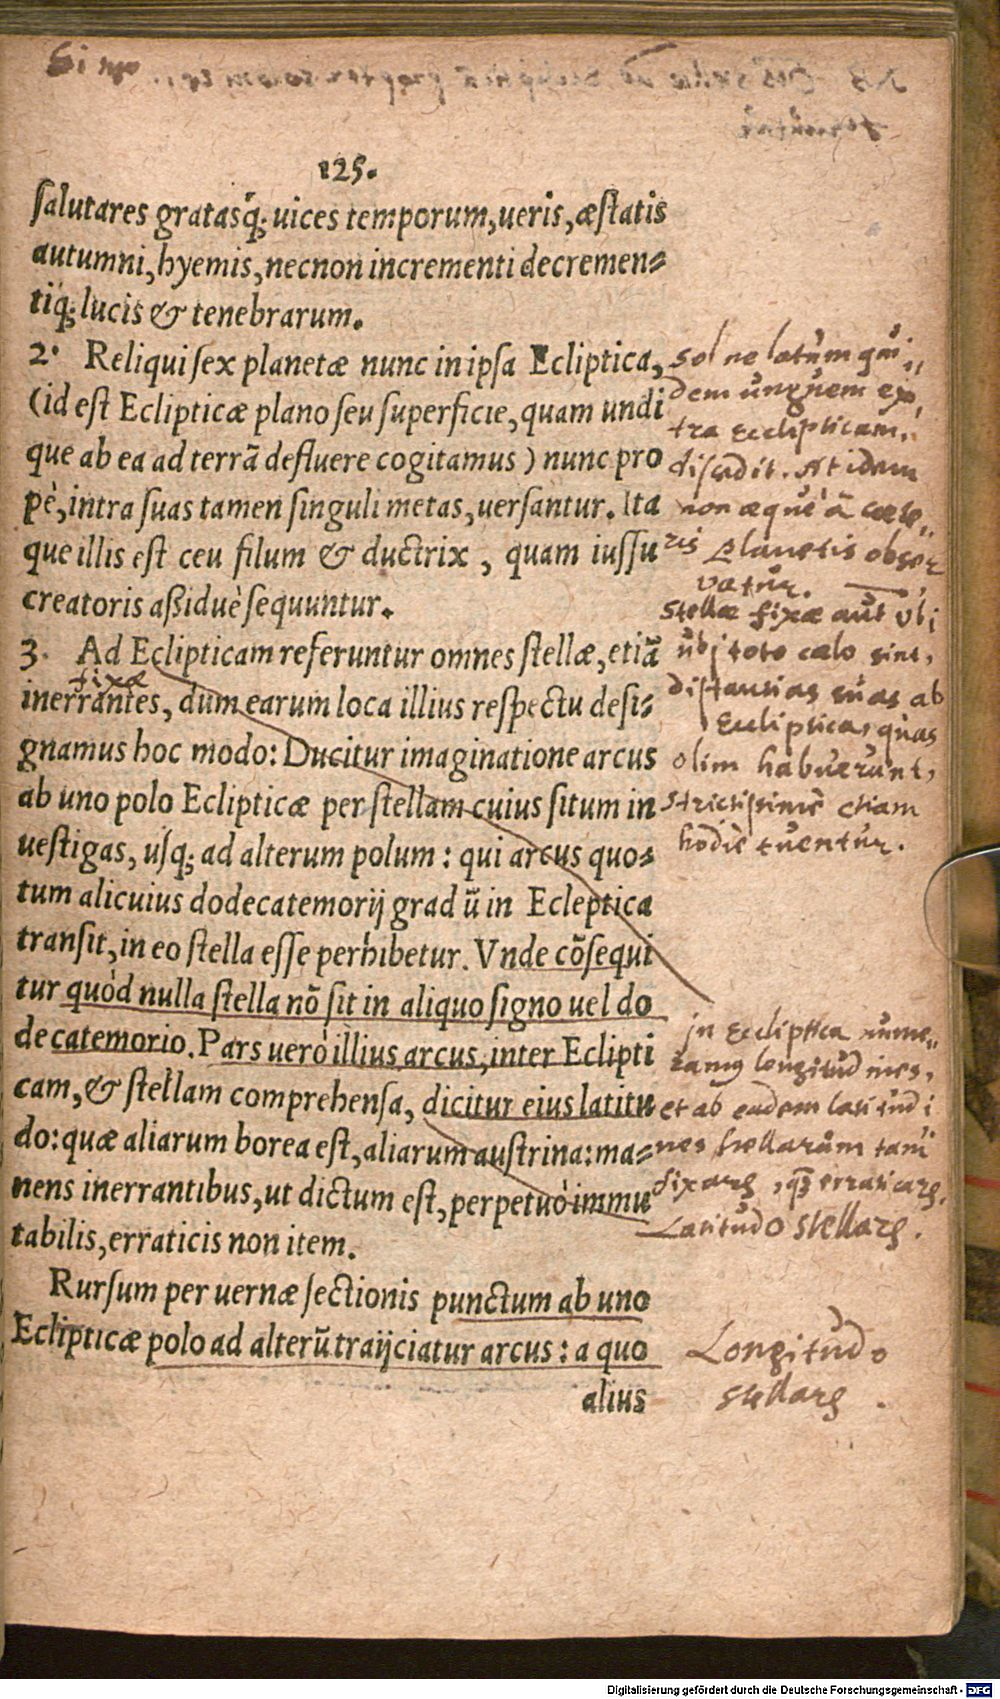 125.
salutares gratasq́; uices temporum, ueris, æstatis
autumni, hyemis, necnon incrementi decremen-
tiq́; lucis & tenebrarum.
2. Reliqui sex planetæ nunc in ipsa Ecliptica,
(id est Eclipticæ plano seu superficie, quam undi
que ab ea ad terrã defluere cogitamus) nunc pro
pè, intra suas tamen singuli metas, uersantur. Ita
que illis est ceu filum & ductrix, quam iussu
creatoris aßiduè sequuntur.
3. Ad Eclipticam referuntur omnes stellæ, etiã
fixæ
inerrantes, dum earum loca illius respectu desi-
gnamus hoc modo: Ducitur imaginatione arcus
ab uno polo Eclipticæ per stellam cuius situm in
uestigas, usq́; ad alterum polum: qui arcus quo-
tum alicuius dodecatemorij gradũ in Ecleptica
transit, in eo stella esse perhibetur. Vnde cõsequi
tur quòd nulla stella nõ sit in aliquo signo uel do
decatemorio. Pars uerò illius arcus, inter Eclipti
cam, & stellam comprehensa, dicitur eius latitu
do: quæ aliarum borea est, aliarum austrina: ma-
nens inerrantibus, ut dictum est, perpetuò immu
tabilis, erraticis non item.
Rursum per uernæ sectionis punctum ab uno
Eclipticæ polo ad alterũ traijciatur arcus: a quo
alius
Sol ne latum qui,,
dem unguem ex,
tra Ecclipticam,
discedit. At idem
non æquè â cæte,,
ris Planetis obser
vatur.
Stellæ fixæ aut ubi
ubi toto cælo sint,
distantias suas ab
Eccliptica, quas
olim habuerunt,
strictissimè etiam
hodiè tuentur.
In Eccliptica nume,,
ramus longitudines,
et ab eadem latitudi
nes stellarum tam
fixarum, quam erraticarum.
Latitudo stellarum.
Longitudo
stellarum.
Digitalisierung gefördert durch die Deutsche Forschungsgemeinschaft - DFG